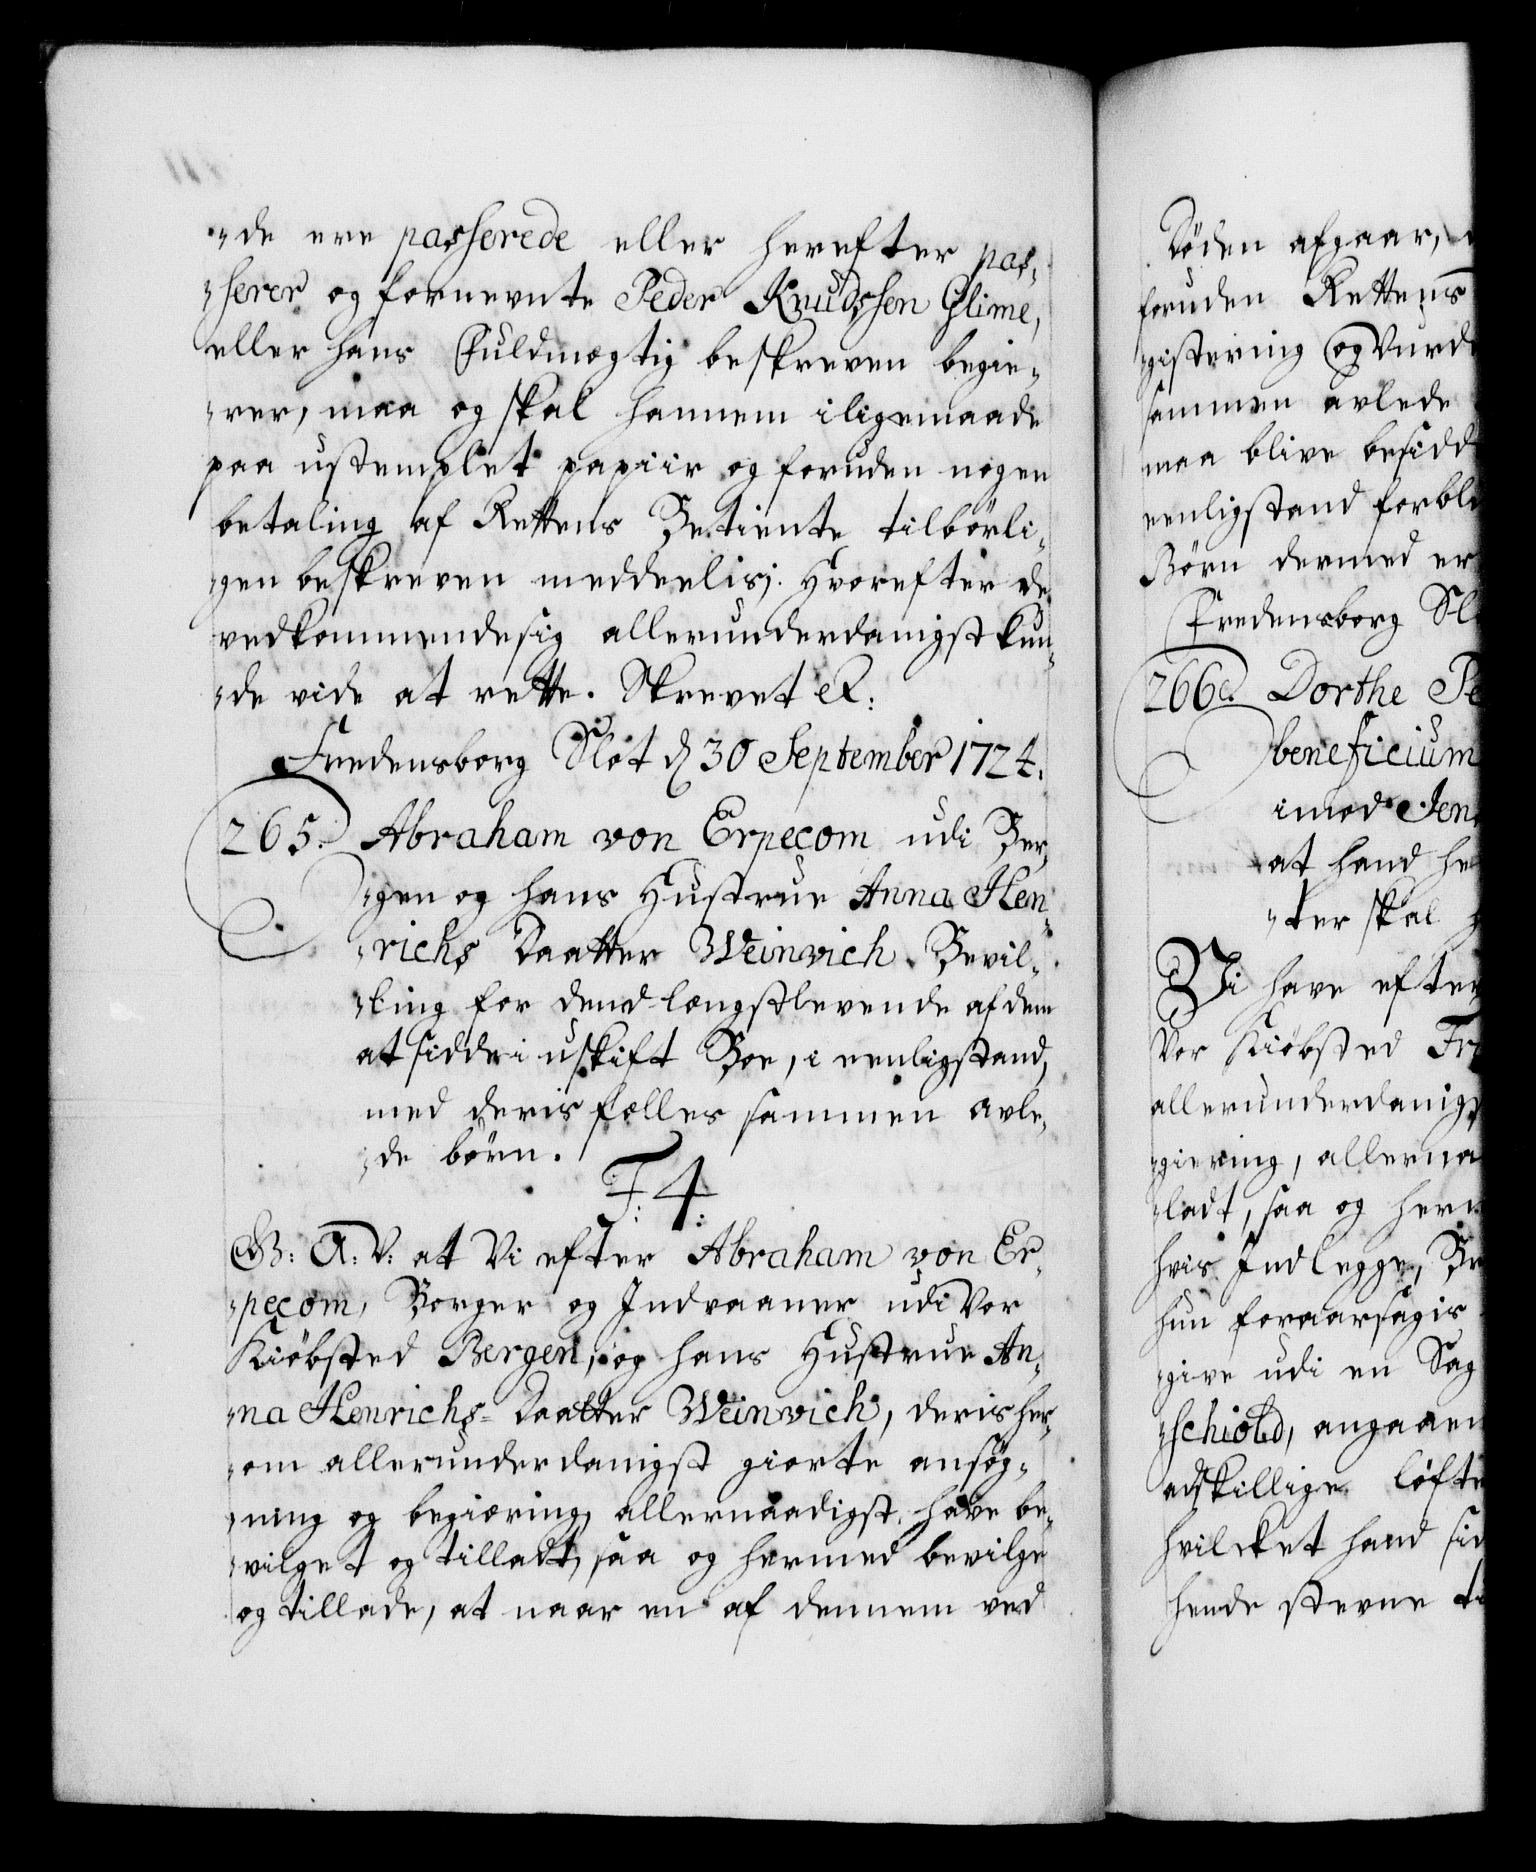 -de ere passerede eller herefter pas-
-serer og fornevnte Peder Knudssen Glime,
eller hans Fuldmegtig beskreven begie-
-rer, maa og skal hannem iligemaade
paa ustemplet papiir og foruden nogen
betaling af Rettens Betiente tilbørli-
-gen beskreven meddeelis; Hvorefter de
vedkommende sig allerunderdanigst kun-
-de vide at rette. Skrevet &:
Fredensborg Slot d 30 September 1724.
265. Abraham von Erpecom udi Ber-
-gen og hans Hustrue Anna Hen-
-richs Daatter Weinwich Bevil-
-ling for dend længstlevende af dem
at sidde i uskift Boe, i eenligstand,
med deris felles sammen avle-
-de børn.
F: 4:
G: A: V: at Vi efter Abraham von Er-
-pecom, Borger og Indvaaner udi Vor
Kiøbsted Bergen, og hans Hustrue An-
-na Henrichs-Daatter Weinwich, deris her-
-om allerunderdanigst giorte ansøg-
-ning og begiæring, allernaadigst have be-
-vilget og tilladt, saa og hermed bevilge
og tillade, at naar en af dennem ved
Døden afgaar,
foruden Rettens
-gistering og Vurd
sammen avlede
maa blive besidd
eenligstand forbl
Børn dermed er
Fredensborg Sl
266. Dorthe Pe
beneficium
imod Jen
at hand he
-ter skal
Vi have efter
Vor Kiøbsted Fr
allerunderdanigs
-giering, allerna
-ladt, saa og her
hvis Indlegge, Be
hun foraarsagis
-give udi en Sag
-schiold, angaaen
adskillige løfte
hvilcket hand sid
hende stevne ti